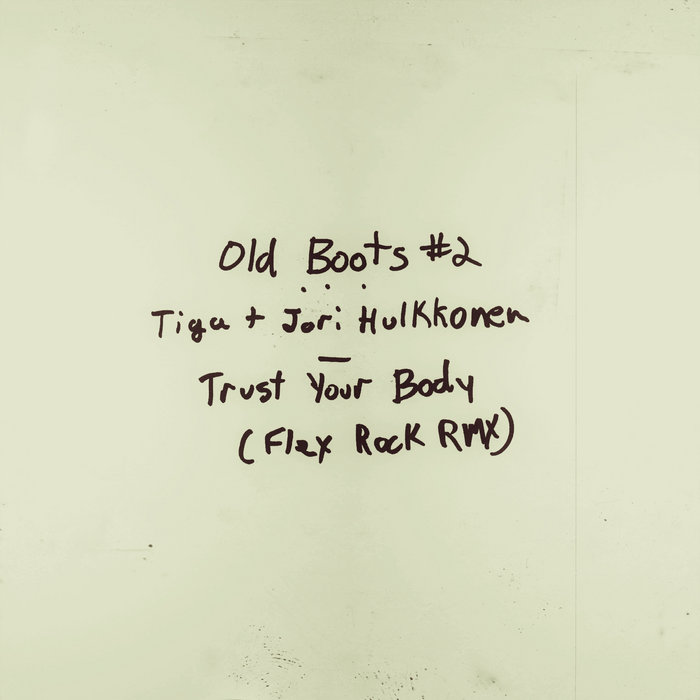 Old Boots #2
...
Tiga + Jori Hulkkonen
—
Trust Your Body
(Flex Rock RMX)